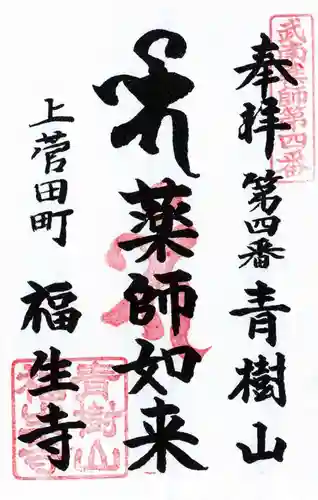 奉拝 第四番 青樹山
武南薬師第四番
薬師如来
上菅田町 福生寺
青樹山
福生寺